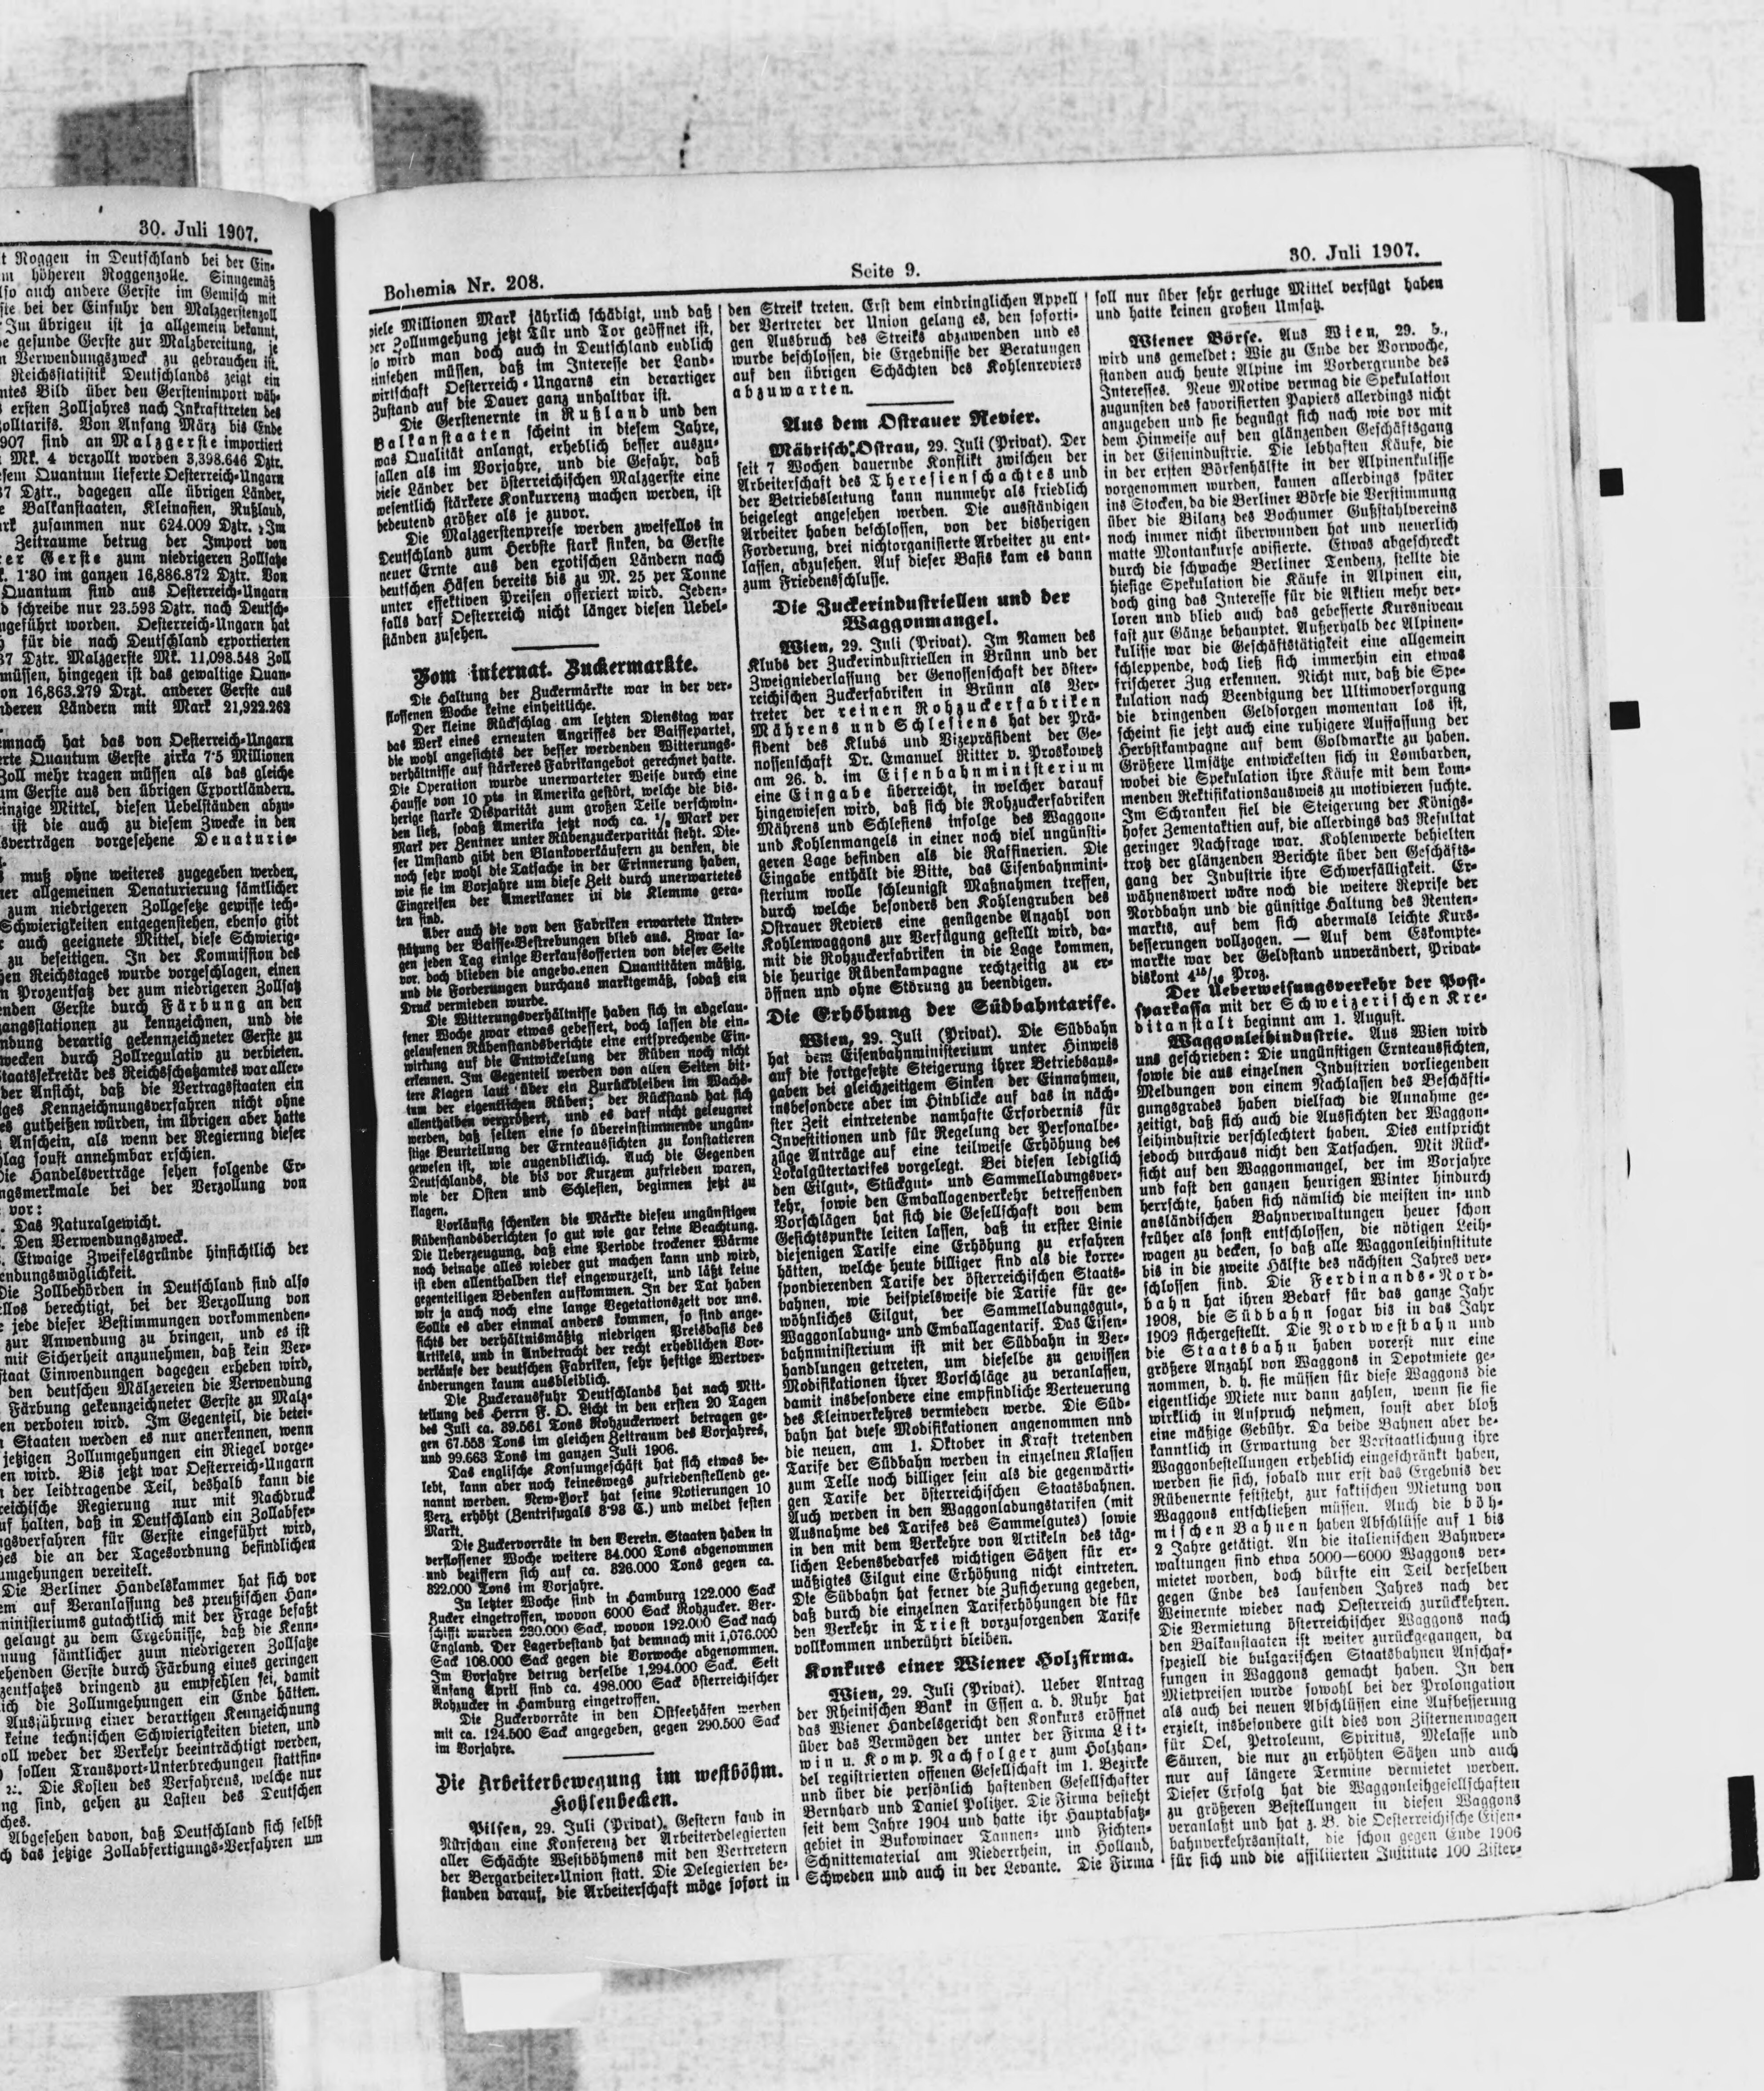 30. Juli 1907.
t Roggen in Deutschland bei der Ein-
m höheren Roggenzolle. Sinngemäß
lso auch andere Gerste im Gemisch mit
ste bei der Einfuhr den Malzgerstenzoll
Im übrigen ist ja allgemein bekannt,
e gesunde Gerste zur Malzbereitung, je
Verwendungszweck zu gebrauchen ist.
Reichsstatistik Deutschlands zeigt ein
ntes Bild über den Gerstenimport wäh-
ersten Zolljahres nach Inkrafttreten des
olltarifs. Von Anfang März bis Ende
907 sind an Malzgerste importiert
Mk. 4 verzollt worden 3,398.646 Dztr.
esem Quantum lieferte Oesterreich-Ungarn
37 Dztr., dagegen alle übrigen Länder,
e Balkanstaaten, Kleinasien, Rußland,
rk zusammen nur 624.009 Dztr. Im
Zeitraume betrug der Import von
er Gerste zum niedrigeren Zollsatze
. 1·30 im ganzen 16,886.872 Dztr. Von
Quantum sind aus Oesterreich-Ungarn
d schreibe nur 23.593 Dztr. nach Deutsch-
ngeführt worden. Oesterreich-Ungarn hat
für die nach Deutschland exportierten
37 Dztr. Malzgerste Mk. 11,098.548 Zoll
müssen, hingegen ist das gewaltige Quan-
on 16,863.279 Drzt. anderer Gerste aus
nderen Ländern mit Mark 21,922.262
emnach hat das von Oesterreich-Ungarn
erte Quantum Gerste zirka 7·5 Millionen
Zoll mehr tragen müssen als das gleiche
um Gerste aus den übrigen Exportländern.
einzige Mittel, diesen Uebelständen abzu-
ist die auch zu diesem Zwecke in den
sverträgen vorgesehene Denaturie-
muß ohne weiteres zugegeben werden,
ner allgemeinen Denaturierung sämtlicher
zum niedrigeren Zollgesetze gewisse tech-
Schwierigkeiten entgegenstehen, ebenso gibt
auch geeignete Mittel, diese Schwierig-
zu beseitigen. In der Kommission des
hen Reichstages wurde vorgeschlagen, einen
n Prozentsatz der zum niedrigeren Zollsatz
enden Gerste durch Färbung an den
angsstationen zu kennzeichnen, und die
ndung derartig gekennzeichneter Gerste zu
wecken durch Zollregulativ zu verbieten.
taatssekretär des Reichsschatzamtes war aller-
der Ansicht, daß die Vertragsstaaten ein
ges Kennzeichnungsverfahren nicht ohne
es gutheißen würden, im übrigen aber hatte
Anschein, als wenn der Regierung dieser
hlag sonst annehmbar erschien.
Die Handelsverträge sehen folgende Er-
ngsmerkmale bei der Verzollung von
vor:
. Das Naturalgewicht.
. Den Verwendungszweck.
. Etwaige Zweifelsgründe hinsichtlich der
endungsmöglichkeit.
Die Zollbehörden in Deutschland sind also
llos berechtigt, bei der Verzollung von
e jede dieser Bestimmungen vorkommenden-
zur Anwendung zu bringen, und es ist
mit Sicherheit anzunehmen, daß kein Ver-
staat Einwendungen dagegen erheben wird,
den deutschen Mälzereien die Verwendung
Färbung gekennzeichneter Gerste zu Malz-
en verboten wird. Im Gegenteil, die betei-
Staaten werden es nur anerkennen, wenn
jetzigen Zollumgehungen ein Riegel vorge-
en wird. Bis jetzt war Oesterreich-Ungarn
der leidtragende Teil, deshalb kann die
reichische Regierung nur mit Nachdruck
uf halten, daß in Deutschland ein Zollabfer-
gsverfahren für Gerste eingeführt wird,
hes die an der Tagesordnung befindlichen
umgehungen vereitelt.
Die Berliner Handelskammer hat sich vor
em auf Veranlassung des preußischen Han-
ministeriums gutachtlich mit der Frage befaßt
gelangt zu dem Ergebnisse, daß die Kenn-
nung sämtlicher zum niedrigeren Zollsatze
ehenden Gerste durch Färbung eines geringen
zentsatzes dringend zu empfehlen sei, damit
ich die Zollumgehungen ein Ende hätten.
Ausführung einer derartigen Kennzeichnung
keine technischen Schwierigkeiten bieten, und
oll weder der Verkehr beeinträchtigt werden,
sollen Transport-Unterbrechungen stattfin-
Die Kosten des Verfahrens, welche nur
ng sind, gehen zu Lasten des Deutschen
ches.
Abgesehen davon, daß Deutschland sich selbst
ch das jetzige Zollabfertigungs-Verfahren um
Bohemia Nr. 208.
Seite 9.
30. Juli 1907.
viele Millionen Mark jährlich schädigt, und daß
der Zollumgehung jetzt Tür und Tor geöffnet ist,
so wird man doch auch in Deutschland endlich
einsehen müssen, daß im Interesse der Land-
wirtschaft Oesterreich-Ungarns ein derartiger
Zustand auf die Dauer ganz unhaltbar ist.
Die Gerstenernte in Rußland und den
Balkanstaaten scheint in diesem Jahre,
was Qualität anlangt, erheblich besser auszu-
fallen als im Vorjahre, und die Gefahr, daß
diese Länder der österreichischen Malzgerste eine
wesentlich stärkere Konkurrenz machen werden, ist
bedeutend größer als je zuvor.
Die Malzgerstenpreise werden zweifellos in
Deutschland zum Herbste stark sinken, da Gerste
neuer Ernte aus den exotischen Ländern nach
deutschen Häfen bereits bis zu M. 25 per Tonne
unter effektiven Preisen offeriert wird. Jeden-
falls darf Oesterreich nicht länger diesen Uebel-
ständen zusehen.
Vom internat. Zuckermarkte.
Die Haltung der Zuckermärkte war in der ver-
flossenen Woche keine einheitliche.
Der kleine Rückschlag am letzten Dienstag war
das Werk eines erneuten Angriffes der Baissepartei,
die wohl angesichts der besser werdenden Witterungs-
verhältnisse auf stärkeres Fabrikangebot gerechnet hatte.
Die Operation wurde unerwarteter Weise durch eine
Hausse von 10 pts in Amerika gestört, welche die bis-
herige starke Disparität zum großen Teile verschwin-
den ließ, sodaß Amerika jetzt noch ca. Mark per
Mark per Zentner unter Rübenzuckerparität steht. Die-
ser Umstand gibt den Blankoverkäufern zu denken, die
noch sehr wohl die Tatsache in der Erinnerung haben,
wie sie im Vorjahre um diese Zeit durch unerwartetes
Eingreifen der Amerikaner in die Klemme gera-
ten sind.
Aber auch die von den Fabriken erwartete Unter-
stützung der Baisse-Bestrebungen blieb aus. Zwar la-
gen jeden Tag einige Verkaufsofferten von dieser Seite
vor, doch blieben die angebo.enen Quantitäten mäßig,
und die Forderungen durchaus marktgemäß, sodaß ein
Druck vermieden wurde.
Die Witterungsverhältnisse haben sich in abgelau-
fener Woche zwar etwas gebessert, doch lassen die ein-
gelaufenen Rübenstandsberichte eine entsprechende Ein-
wirkung auf die Entwickelung der Rüben noch nicht
erkennen. Im Gegenteil werden von allen Seiten bit-
tere Klagen laut über ein Zurückbleiben im Wachs-
tum der eigentlichen Rüben; der Rückstand hat sich
allenthalben vergrößert, und es darf nicht geleugnet
werden, daß selten eine so übereinstimmende ungün-
stige Beurteilung der Ernteaussichten zu konstatieren
gewesen ist, wie augenblicklich. Auch die Gegenden
Deutschlands, die bis vor Kurzem zufrieden waren,
wie der Osten und Schlesien, beginnen jetzt zu
klagen.
Vorläufig schenken die Märkte diesen ungünstigen
Rübenstandsberichten so gut wie gar keine Beachtung.
Die Ueberzeugung, daß eine Periode trockener Wärme
noch beinahe alles wieder gut machen kann und wird,
ist eben allenthalben tief eingewurzelt, und läßt keine
gegenteiligen Bedenken aufkommen. In der Tat haben
wir ja auch noch eine lange Vegetationszeit vor uns.
Sollte es aber einmal anders kommen, so sind ange-
sichts der verhältnismäßig niedrigen Preisbasis des
Artikels, und in Anbetracht der recht erheblichen Vor-
verkäufe der deutschen Fabriken, sehr heftige Wertver-
änderungen kaum ausbleiblich.
Die Zuckerausfuhr Deutschlands hat nach Mit-
teilung des Herrn F. O. Licht in den ersten 20 Tagen
des Juli ca. 39.561 Tons Rohzuckerwert betragen ge-
gen 67.558 Tons im gleichen Zeitraum des Vorjahres,
und 99.663 Tons im ganzen Juli 1906.
Das englische Konsumgeschäft hat sich etwas be-
lebt, kann aber noch keineswegs zufriedenstellend ge-
nannt werden. New-York hat seine Notierungen 10
Verz. erhöht (Zentrifugals 3·93 C.) und meldet festen
Markt.
Die Zuckervorräte in den Verein. Staaten haben in
verflossener Woche weitere 34.000 Tons abgenommen
und beziffern sich auf ca. 326.000 Tons gegen ca.
322.000 Tons im Vorjahre.
In letzter Woche sind in Hamburg 122.000 Sack
Zucker eingetroffen, wovon 6000 Sack Rohzucker. Ver-
schifft wurden 230.000 Sack, wovon 192.000 Sack nach
England. Der Lagerbestand hat demnach mit 1,076.000
Sack 108.000 Sack gegen die Vorwoche abgenommen.
Im Vorjahre betrug derselbe 1,294.000 Sack. Seit
Anfang April sind ca. 498.000 Sack österreichischer
Rohzucker in Hamburg eingetroffen.
Die Zuckervorräte in den Ostseehäfen werden
mit ca. 124.500 Sack angegeben, gegen 290.500 Sack
im Vorjahre.
Die Arbeiterbewegung im westböhm.
Kohlenbecken.
Pilsen, 29. Juli (Privat). Gestern fand in
Nürschau eine Konferenz der Arbeiterdelegierten
aller Schächte Westböhmens mit den Vertretern
der Bergarbeiter-Union statt. Die Delegierten be-
standen darauf, die Arbeiterschaft möge sofort in
den Streik treten. Erst dem eindringlichen Appell
der Vertreter der Union gelang es, den soforti-
gen Ausbruch des Streiks abzuwenden und es
wurde beschlossen, die Ergebnisse der Beratungen
auf den übrigen Schächten des Kohlenreviers
abzuwarten.
Aus dem Ostrauer Revier.
Mährisch-Ostrau, 29. Juli (Privat). Der
seit 7 Wochen dauernde Konflikt zwischen der
Arbeiterschaft des Theresienschachtes und
der Betriebsleitung kann nunmehr als friedlich
beigelegt angesehen werden. Die ausständigen
Arbeiter haben beschlossen, von der bisherigen
Forderung, drei nichtorganisierte Arbeiter zu ent-
lassen, abzusehen. Auf dieser Basis kam es dann
zum Friedensschlusse.
Die Zuckerindustriellen und der
Waggonmangel.
Wien, 29. Juli (Privat). Im Namen des
Klubs der Zuckerindustriellen in Brünn und der
Zweigniederlassung der Genossenschaft der öster-
reichischen Zuckerfabriken in Brünn als Ver-
treter der reinen Rohzuckerfabriken
Mährens und Schlesiens hat der Prä-
sident des Klubs und Vizepräsident der Ge-
nossenschaft Dr. Emanuel Ritter v. Proskowetz
am 26. d. im Eisenbahnministerium
eine Eingabe überreicht, in welcher darauf
hingewiesen wird, daß sich die Rohzuckerfabriken
Mährens und Schlesiens infolge des Waggon-
und Kohlenmangels in einer noch viel ungünsti-
geren Lage befinden als die Raffinerien. Die
Eingabe enthält die Bitte, das Eisenbahnmini-
sterium wolle schleunigst Maßnahmen treffen,
durch welche besonders den Kohlengruben des
Ostrauer Reviers eine genügende Anzahl von
Kohlenwaggons zur Verfügung gestellt wird, da-
mit die Rohzuckerfabriken in die Lage kommen,
die heurige Rübenkampagne rechtzeitig zu er-
öffnen und ohne Störung zu beendigen.
Die Erhöhung der Südbahntarife.
Wien, 29. Juli (Privat). Die Südbahn
hat dem Eisenbahnministerium unter Hinweis
auf die fortgesetzte Steigerung ihrer Betriebsaus-
gaben bei gleichzeitigem Sinken der Einnahmen,
insbesondere aber im Hinblicke auf das in näch-
ster Zeit eintretende namhafte Erfordernis für
Investitionen und für Regelung der Personalbe-
züge Anträge auf eine teilweise Erhöhung des
Lokalgütertarifes vorgelegt. Bei diesen lediglich
den Eilgut-, Stückgut- und Sammelladungsver-
kehr, sowie den Emballagenverkehr betreffenden
Vorschlägen hat sich die Gesellschaft von dem
Gesichtspunkte leiten lassen, daß in erster Linie
diejenigen Tarife eine Erhöhung zu erfahren
hätten, welche heute billiger sind als die korre-
spondierenden Tarife der österreichischen Staats-
bahnen, wie beispielsweise die Tarife für ge-
wöhnliches Eilgut, der Sammelladungsgut-,
Waggonladung- und Emballagentarif. Das Eisen-
bahnministerium ist mit der Südbahn in Ver-
handlungen getreten, um dieselbe zu gewissen
Modifikationen ihrer Vorschläge zu veranlassen,
damit insbesondere eine empfindliche Verteuerung
des Kleinverkehres vermieden werde. Die Süd-
bahn hat diese Modifikationen angenommen und
die neuen, am 1. Oktober in Kraft tretenden
Tarife der Südbahn werden in einzelnen Klassen
zum Teile noch billiger sein als die gegenwärti-
gen Tarife der österreichischen Staatsbahnen.
Auch werden in den Waggonladungstarifen (mit
Ausnahme des Tarifes des Sammelgutes) sowie
in den mit dem Verkehre von Artikeln des täg-
lichen Lebensbedarfes wichtigen Sätzen für er-
mäßigtes Eilgut eine Erhöhung nicht eintreten.
Die Südbahn hat ferner die Zusicherung gegeben,
daß durch die einzelnen Tariferhöhungen die für
den Verkehr in Triest vorzusorgenden Tarife
vollkommen unberührt bleiben.
Konkurs einer Wiener Holzfirma.
Wien, 29. Juli (Privat). Ueber Antrag
der Rheinischen Bank in Essen a. d. Ruhr hat
das Wiener Handelsgericht den Konkurs eröffnet
über das Vermögen der unter der Firma Lit-
win u. Komp. Nachfolger zum Holzhan-
del registrierten offenen Gesellschaft im 1. Bezirke
und über die persönlich haftenden Gesellschafter
Bernhard und Daniel Politzer. Die Firma besteht
seit dem Jahre 1904 und hatte ihr Hauptabsatz-
gebiet in Bukowinaer Tannen- und Fichten-
Schnittematerial am Niederrhein, in Holland,
Schweden und auch in der Levante. Die Firma
soll nur über sehr geringe Mittel verfügt haben
und hatte keinen großen Umsatz.
Wiener Börse. Aus Wien, 29. d.,
wird uns gemeldet: Wie zu Ende der Vorwoche,
standen auch heute Alpine im Vordergrunde des
Interesses. Neue Motive vermag die Spekulation
zugunsten des favorisierten Papiers allerdings nicht
anzugeben und sie begnügt sich nach wie vor mit
dem Hinweise auf den glänzenden Geschäftsgang
in der Eisenindustrie. Die lebhaften Käufe, die
in der ersten Börsenhälfte in der Alpinenkulisse
vorgenommen wurden, kamen allerdings später
ins Stocken, da die Berliner Börse die Verstimmung
über die Bilanz des Bochumer Gußstahlvereins
noch immer nicht überwunden hat und neuerlich
matte Montankurse avisierte. Etwas abgeschreckt
durch die schwache Berliner Tendenz, stellte die
hiesige Spekulation die Käufe in Alpinen ein,
doch ging das Interesse für die Aktien mehr ver-
loren und blieb auch das gebesserte Kursniveau
fast zur Gänze behauptet. Außerhalb der Alpinen-
kulisse war die Geschäftstätigkeit eine allgemein
schleppende, doch ließ sich immerhin ein etwas
frischerer Zug erkennen. Nicht nur, daß die Spe-
kulation nach Beendigung der Ultimoversorgung
die dringenden Geldsorgen momentan los ist,
scheint sie jetzt auch eine ruhigere Auffassung der
Herbstkampagne auf dem Goldmarkte zu haben.
Größere Umsätze entwickelten sich in Lombarden,
wobei die Spekulation ihre Käufe mit dem kom-
menden Rektifikationsausweis zu motivieren suchte.
Im Schranken fiel die Steigerung der Königs-
hofer Zementaktien auf, die allerdings das Resultat
geringer Nachfrage war. Kohlenwerte behielten
trotz der glänzenden Berichte über den Geschäfts-
gang der Industrie ihre Schwerfälligkeit. Er-
wähnenswert wäre noch die weitere Reprise der
Nordbahn und die günstige Haltung des Renten-
markts, auf dem sich abermals leichte Kurs-
besserungen vollzogen. — Auf dem Eskompte-
markte war der Geldstand unverändert, Privat-
diskont 4¹⁵/₁₆ Proz.
Der Ueberweisungsverkehr der Post-
sparkassa mit der Schweizerischen Kre-
ditanstalt beginnt am 1. August.
Waggonleihindustrie. Aus Wien wird
uns geschrieben: Die ungünstigen Ernteaussichten,
sowie die aus einzelnen Industrien vorliegenden
Meldungen von einem Nachlassen des Beschäfti-
gungsgrades haben vielfach die Annahme ge-
zeitigt, daß sich auch die Aussichten der Waggon-
leihindustrie verschlechtert haben. Dies entspricht
jedoch durchaus nicht den Tatsachen. Mit Rück-
sicht auf den Waggonmangel, der im Vorjahre
und fast den ganzen heurigen Winter hindurch
herrschte, haben sich nämlich die meisten in- und
ausländischen Bahnverwaltungen heuer schon
früher als sonst entschlossen, die nötigen Leih-
wagen zu decken, so daß alle Waggonleihinstitute
bis in die zweite Hälfte des nächsten Jahres ver-
schlossen sind. Die Ferdinands-Nord-
bahn hat ihren Bedarf für das ganze Jahr
1908, die Südbahn sogar bis in das Jahr
1909 sichergestellt. Die Nordwestbahn und
die Staatsbahn haben vorerst nur eine
größere Anzahl von Waggons in Depotmiete ge-
nommen, d. h. sie müssen für diese Waggons die
eigentliche Miete nur dann zahlen, wenn sie sie
wirklich in Anspruch nehmen, sonst aber bloß
eine mäßige Gebühr. Da beide Bahnen aber be-
kanntlich in Erwartung der Verstaatlichung ihre
Waggonbestellungen erheblich eingeschränkt haben,
werden sie sich, sobald nur erst das Ergebnis der
Rübenernte feststeht, zur faktischen Mietung von
Waggons entschließen müssen. Auch die böh-
mischen Bahnen haben Abschlüsse auf 1 bis
2 Jahre getätigt. An die italienischen Bahnver-
waltungen sind etwa 5000—6000 Waggons ver-
mietet worden, doch dürfte ein Teil derselben
gegen Ende des laufenden Jahres nach der
Weinernte wieder nach Oesterreich zurückkehren.
Die Vermietung österreichischer Waggons nach
den Balkanstaaten ist weiter zurückgegangen, da
speziell die bulgarischen Staatsbahnen Anschaf-
fungen in Waggons gemacht haben. In den
Mietpreisen wurde sowohl bei der Prolongation
als auch bei neuen Abschlüssen eine Aufbesserung
erzielt, insbesondere gilt dies von Zisternenwagen
für Oel, Petroleum, Spiritus, Melasse und
Säuren, die nur zu erhöhten Sätzen und auch
nur auf längere Termine vermietet werden.
Dieser Erfolg hat die Waggonleihgesellschaften
zu größeren Bestellungen in diesen Waggons
veranlaßt und hat z. B. die Oesterreichische Eisen-
bahnverkehrsanstalt, die schon gegen Ende 1906
für sich und die affiliierten Institute 100 Zister-